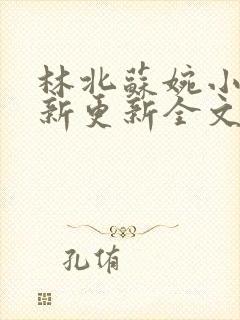 林北蘇婉小
新更新全文
孔侑